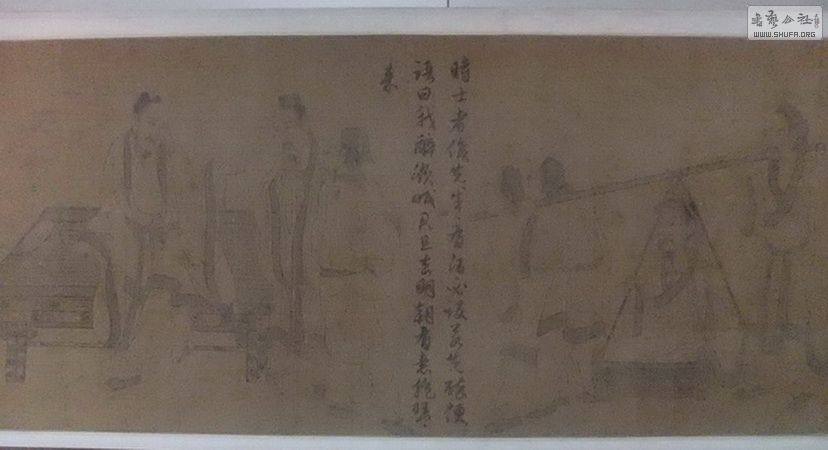 書藝公社
WWW.SHUFA.ORG
士者先生有酒必設若先醉便
語曰我醉欲眠且去明朝有意抱琴
來